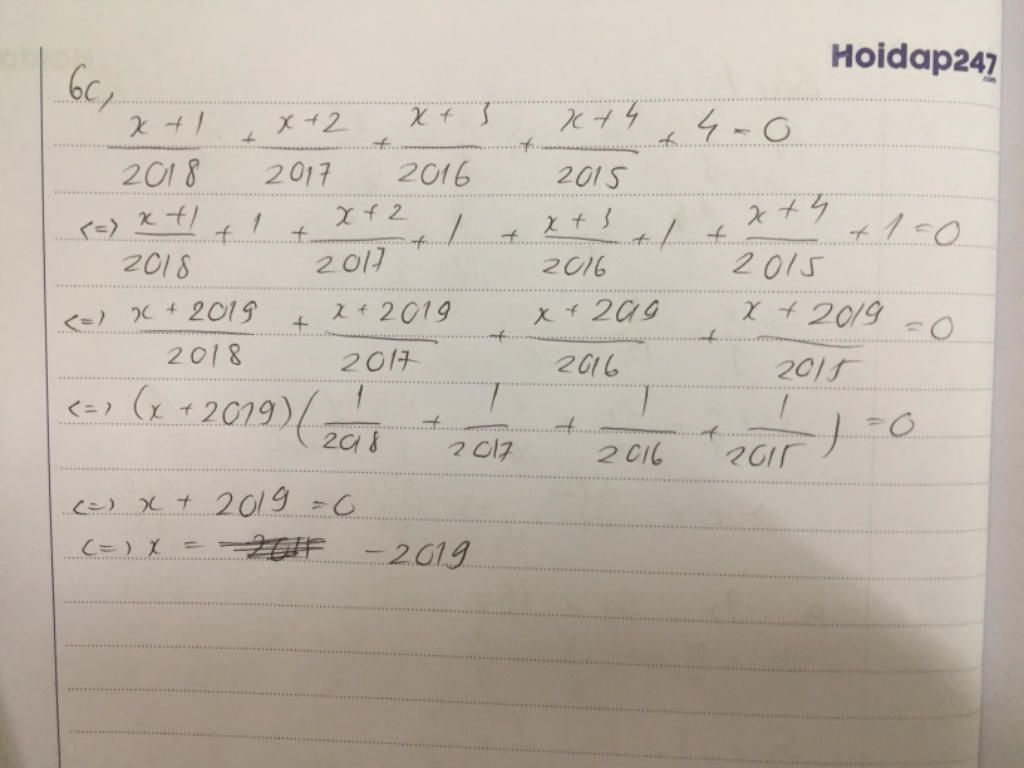 Hoidap247.com
6c,
x+1/2018 + x+2/2017 + x+3/2016 + x+4/2015 + 4 = 0
<=> x+1/2018 + 1 + x+2/2017 + 1 + x+3/2016 + 1 + x+4/2015 + 1 = 0
<=> x+2019/2018 + x+2019/2017 + x+2019/2016 + x+2019/2015 = 0
<=> (x+2019)(1/2018 + 1/2017 + 1/2016 + 1/2015) = 0
<=> x + 2019 = 0
<=> x = -2019